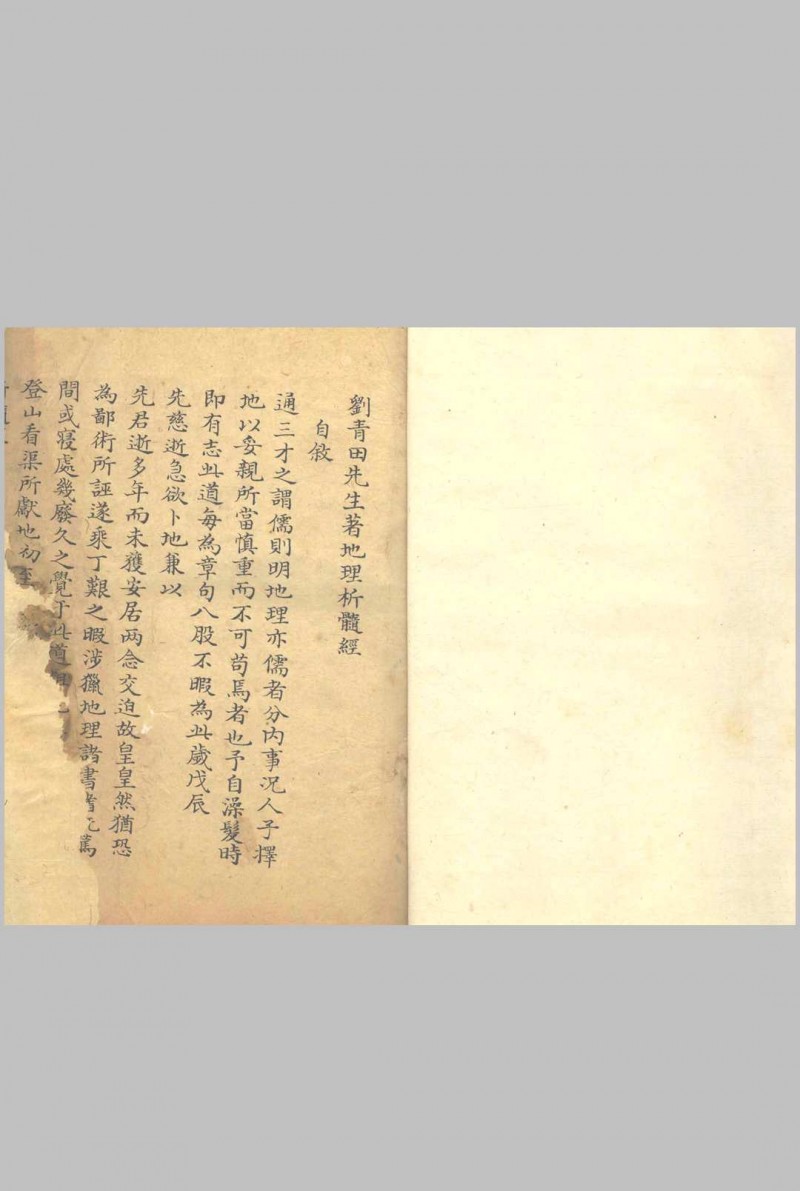 劉青田先生著地理析髓經
自敘
通三才之謂儒則明地理亦儒者分内事况人子擇
地以妥親所當慎重而不可苟焉者也予自澡髮時
即有志此道每為章句八股不暇為此歲戊辰
先慈逝急欲卜地兼以
先君逝多年而未獲安居两念交迫故皇皇然猶恐
為鄙術所誣遂乘丁艱之暇涉獵地理諸書
間或寝處幾廢久之覺于此道
登山看渠所獻地初至